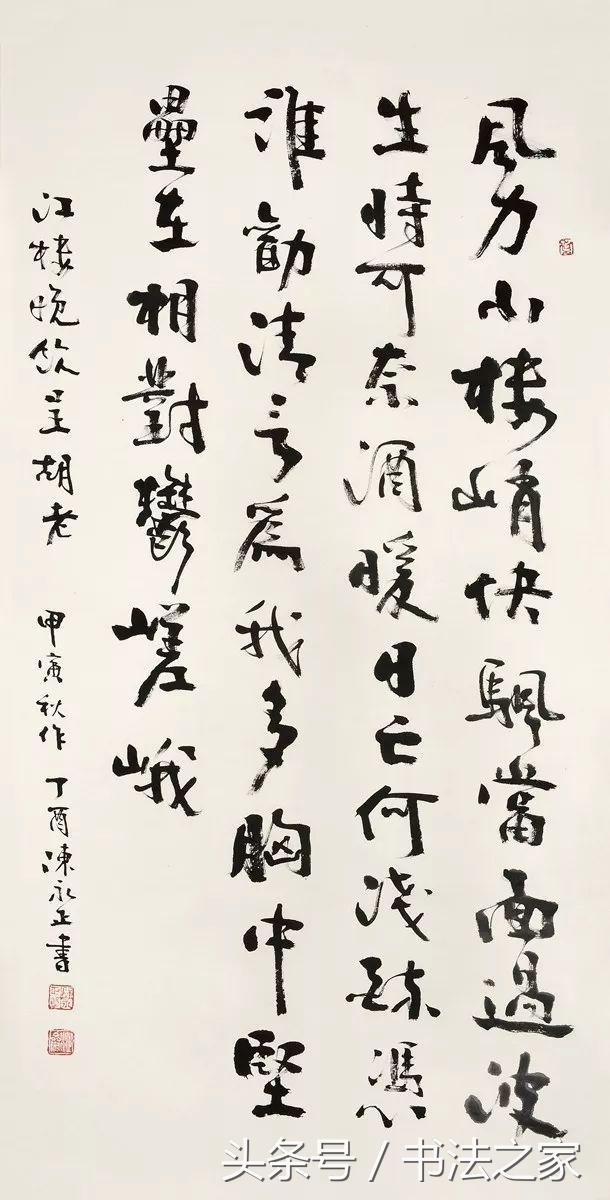 風力小樓峭快颿當面過波
生時可奈酒暖日亡何淺憑
誰勸清言爲我多胸中堅
壘在相對鬱嵯峨
江樓晚飲呈胡老 甲寅秋作 丁酉陳永正書
头条号 / 书法之家